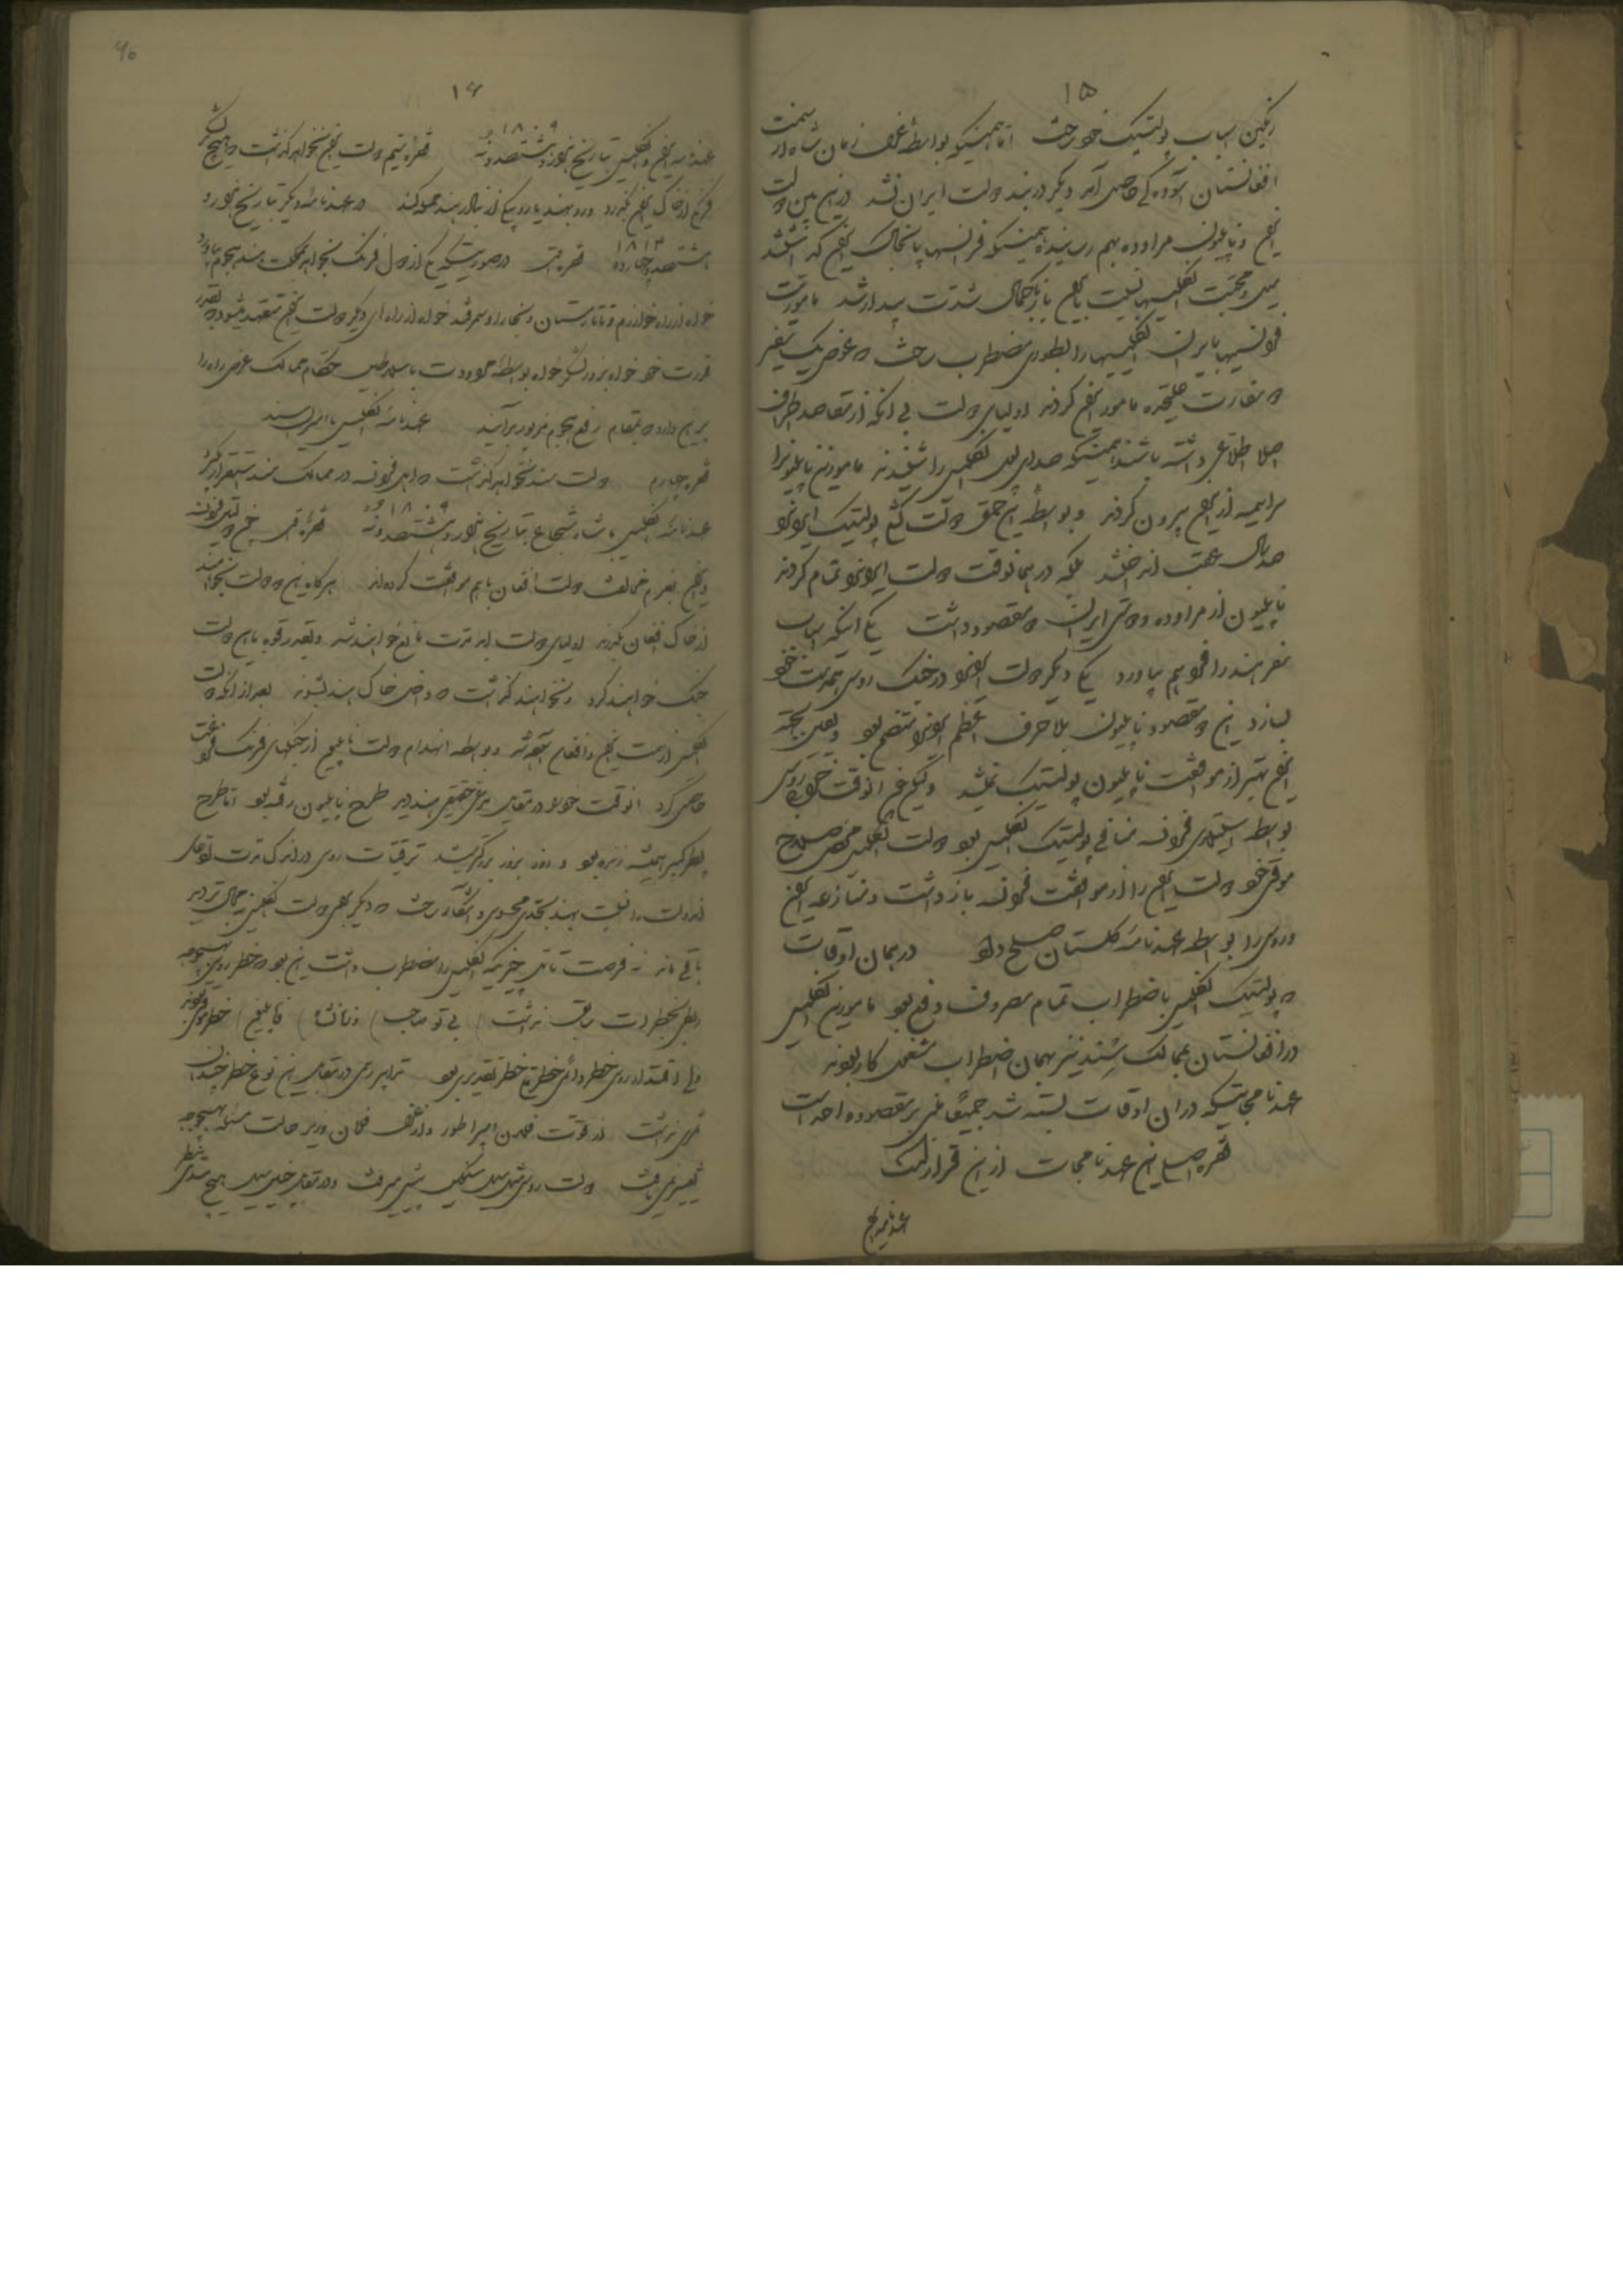 ۱۵
رنگین اسباب پولتیک خود ساخت اما همینکه بواسطه عزل زمان شاه از سمت
افغانستان آسوده‌گی حاصل آمد دیگر در بند دولت ایران نشد درین بین دولت
ایران و ناپلیون مراوده بهم رسانیدند همینکه فرانسها پا بخاک ایران گذاشتند
میل و محبت انگلیسها نسبت بایران باز با کمال شدت پیدار شد ماموریت
فرانسیها بایران انگلیسها را بطوری مضطرب ساخت که عوض یک سفیر
دو سفارت علیحده مامور ایران کردند اولیای دولت بی آنکه از مقاصد طرفین
اصلا اطلاعی داشته باشند همینکه صدای پول انگلیس را شنیدند مامورین ناپلیون را
سراسیمه از ایران بیرون کردند و بواسطه این حمق دولت کشی پولتیک ایران را
صد سال عقب انداختند بلکه در همانوقت دولت ایران را تمام کردند
ناپلیون از مراوده و دوستی ایران دو مقصود داشت یکی اینکه اسباب
سفر هند را فراهم بیاورد یکی دیگر دولت ایران را در جنگ روس همدست خود
بسازد این دو مقصود ناپلیون بلا حرف اعظم ایران را متضمن بود و بجهت
ایران بهتر از موافقت ناپلیون پولتیک نمیشد ولیکن چون آنوقت جنگ روس
بواسطه استیلای فرانسه منافی پولتیک انگلیس بود دولت انگلیس محض صلاح
موقتی خود دولت ایران را از موافقت فرانسه باز داشت و منازعه ایران
و روس را بواسطه عهدنامه گلستان صلح داد در همان اوقات
که پولتیک انگلیس باضطراب تمام مصروف دفع بود مامورین انگلیس
در افغانستان و ممالک سند نیز بهمان اضطراب مشغول کار بودند
عهدنامجاتیکه در آن اوقات بسته شد جمیعا مبنی بر مقصود واحد است
فقره اصل این عهدنامجات ازین قرار است
عهدنامه ایران
۶۰
۱۶
عهدنامه ایران و انگلیس بتاریخ هزار و هشتصد و نه ۱۸۰۹ فقره سیم دولت ایران نخواهد گذاشت که هیچ لشکر
فرنگ از خاک ایران بگذرد و رو بهند یا رو بیکی از بنادر هند حمله کند در عهدنامه دیگر بتاریخ هزار و
هشتصد و چهارده ۱۸۱۴ فقره در صورتیکه یکی از دول فرنگ بخواهد بمملکت هند هجوم بیاورد
خواه از راه خوارزم و تاتارستان و بخارا و سمرقند خواه از راه‌های دیگر دولت ایران متعهد میشود که بقدر
قدرت خود خواه بزور لشکر خواه بواسطه مودت با سلاطین و حکام ممالک عرض راه را
برین دارد که بمقام رفع هجوم مزبور برآیند عهدنامه انگلیس با امرای سند
فقره چهارم دولت سند نخواهد گذاشت که اهل فرانسه در ممالک سند استقرار گیرند
عهدنامه انگلیس با شاه شجاع بتاریخ هزار و هشتصد و نه ۱۸۰۹ فقره چون دولتین فرانسه
و ایران بعزم مخالفت دولت افغان باهم موافقت کرده‌اند هرگاه این دو دولت بخواهند
از خاک افغان بگذرند اولیای دولت مانع خواهند شد و بقدر قوه با این دولت
جنگ خواهند کرد و نخواهند گذاشت که داخل خاک هند بشوند بعد از آنکه دولت
انگلیس از سمت ایران و افغان آسوده شد و بواسطه انهدام دولت ناپلیون از جنگهای فرنگ فراغت
حاصل کرد آنوقت خود را در مقابل مدعی حقیقی هند دید طرح ناپلیون رفته بود اما طرح
پطر کبیر همیشه زنده بود و روز بروز بزرگتر میشد ترقیات روس در اندک مدت
از دولت را نسبت بهند بحدی محسوس و آشکار ساخت که دیگر بجهت دولت انگلیس مجال تردید
باقی ماند نه فرصت تأمل چیزیکه انگلیس را مضطرب داشت این بود که خطر روس بهیچوجه
ربطی بخطرات سابق نداشت (تیپو صاحب) و (زمانشاه) (ناپلیون) خطر موقتی بودند
ولی اقتدار روس خطر دائمی خطر طبیعی خطر تقدیری بود تدابیر رسمی در مقابل این نوع خطر چندان
ثمری نداشت از فوت فلان امپراطور و از عزل فلان وزیر حالت مسئله بهیچوجه
تغییر نمی‌یافت دولت روس مثل سیل سنگین پیش میرفت و در مقابل چنین سیل هیچ سدی بنظر